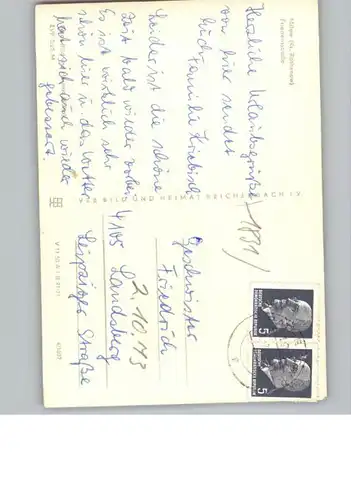 Milow (Kr. Rathenow)
Friedensstraße
Herzliche Urlaubsgrüße
von hier sendet
Euch Familie Kriebisch
Leider ist die schöne
Zeit bald wieder vorbei.
Es ist wirklich sehr
schön hier u. das Wetter
hat sich auch wieder
gebessert.
VEB BILD UND HEIMAT REICHENBACH I.V.
/1831/
Geschwister
Friedrich
2.10.73
4105 Landsberg
Leipziger Straße
5
DEUTSCHE DEMOKRATISCHE REPUBLIK
5
DEUTSCHE DEMOKRATISCHE REPUBLIK